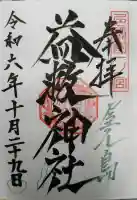 奉拝
屋久島
益救神社
令和六年十月二十九日